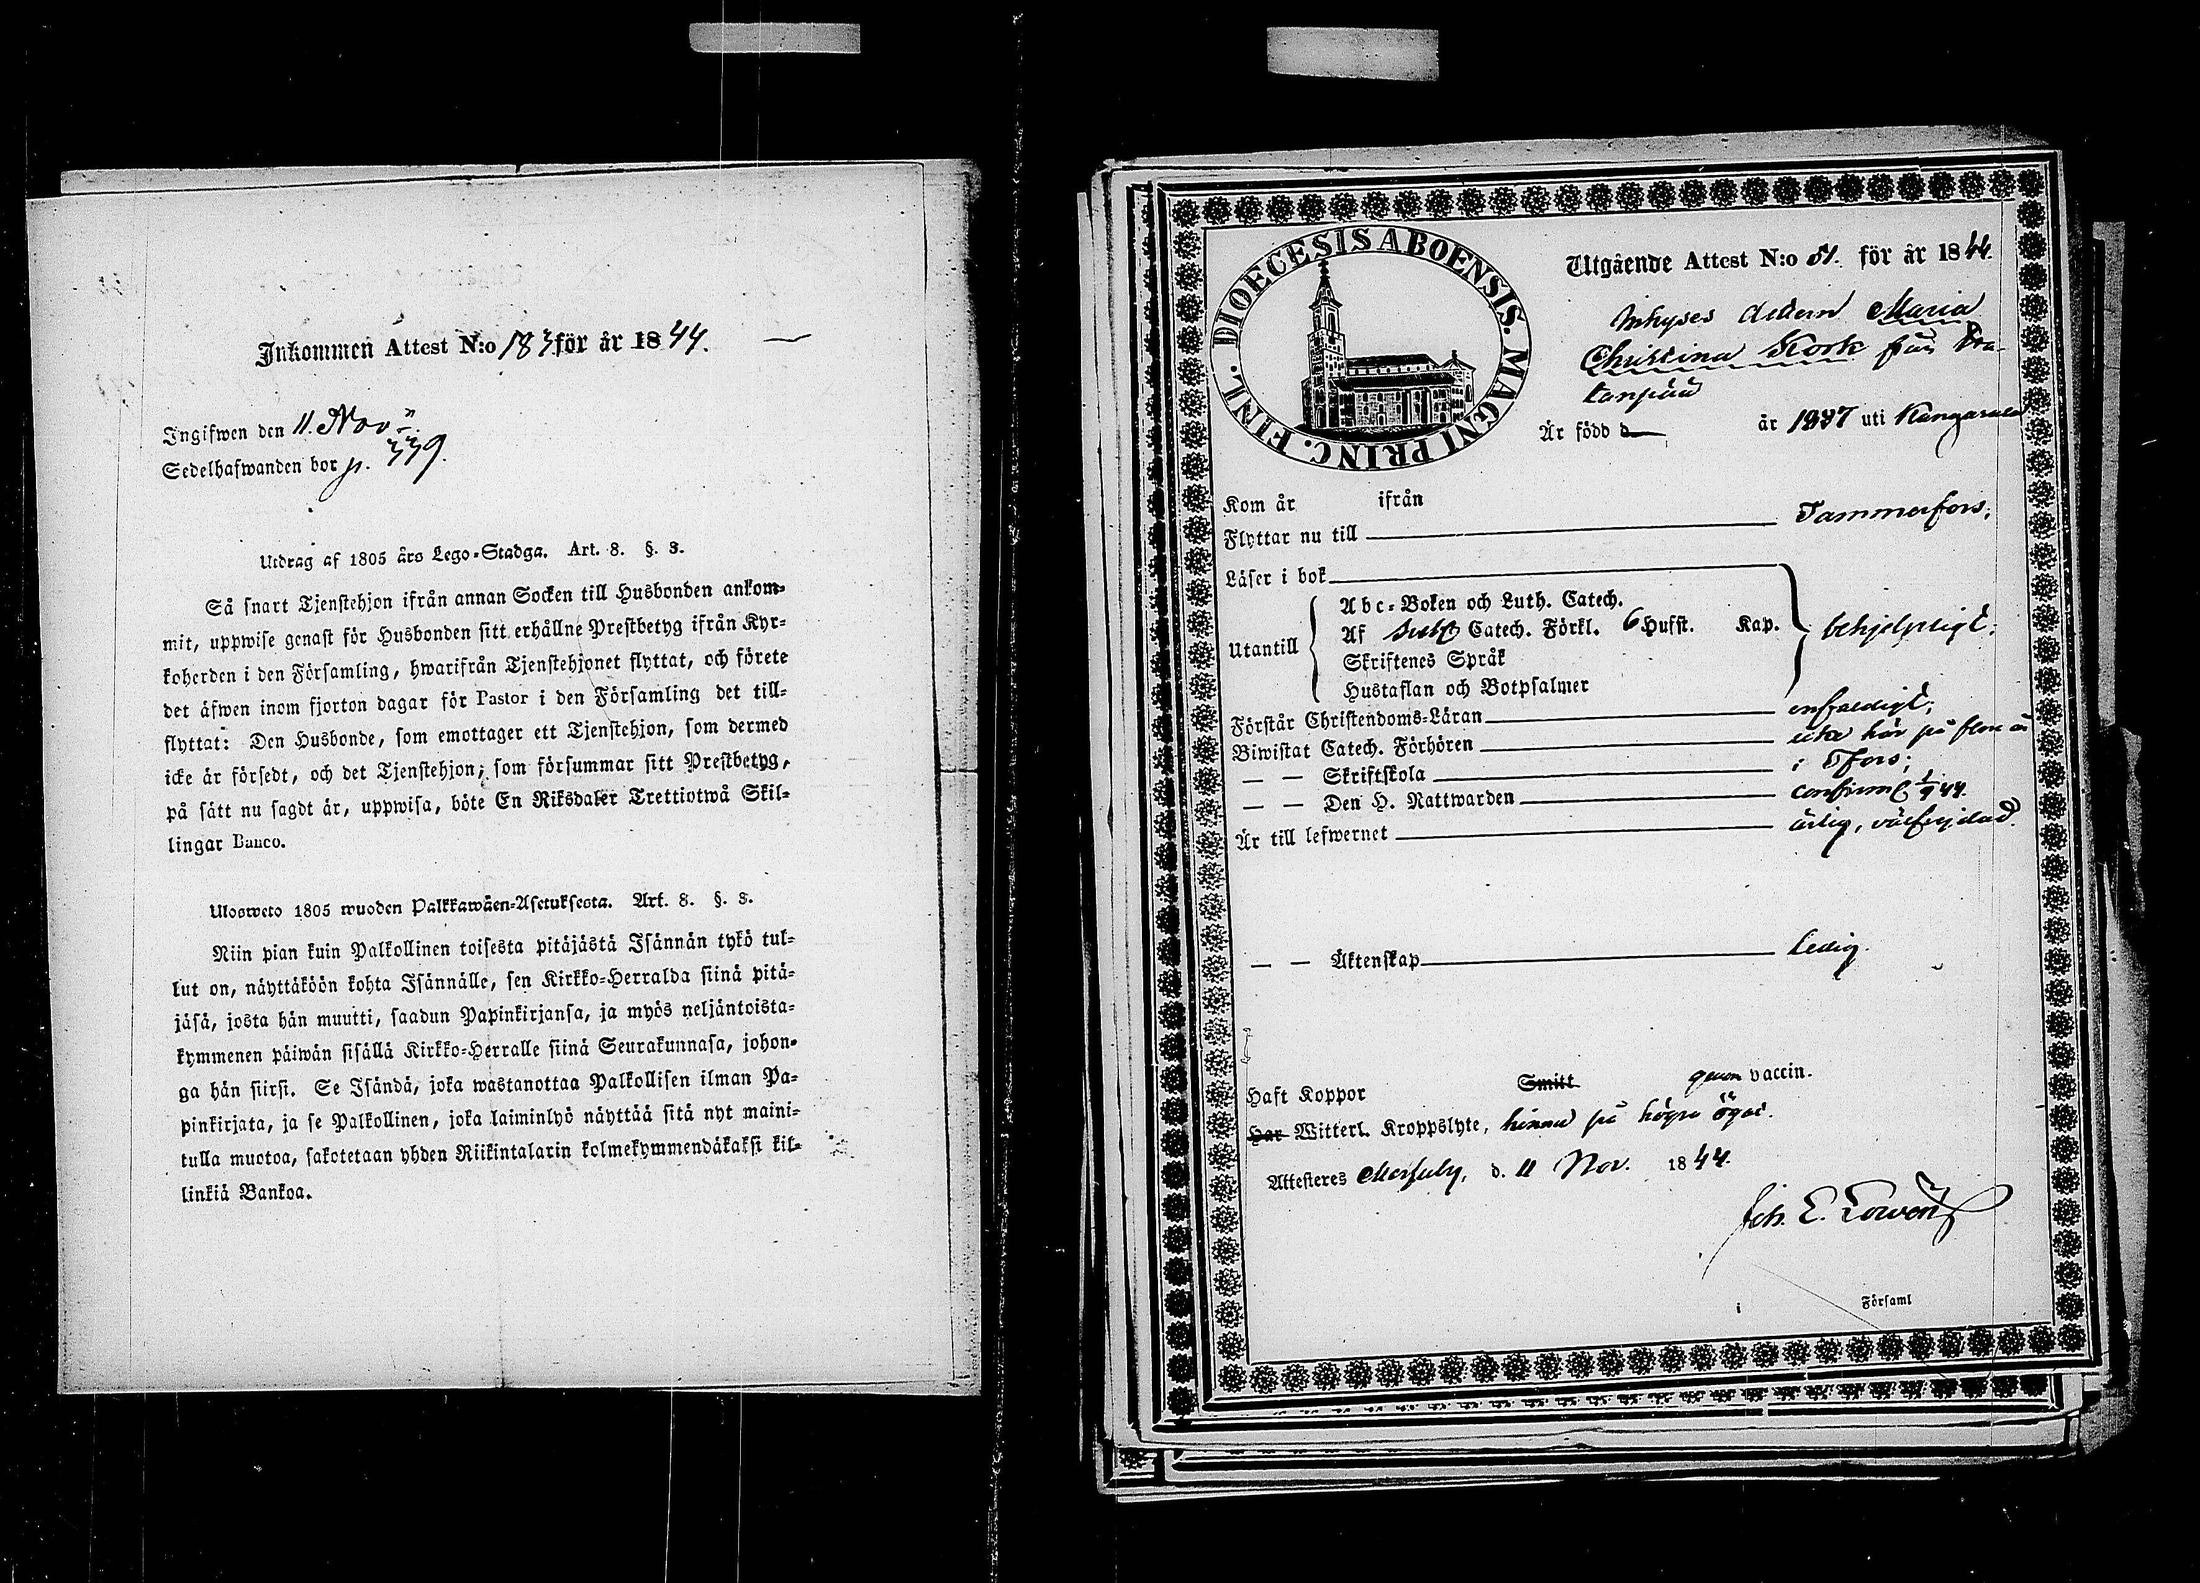 Inkommen Attest N:o 183 för år 1844.
Ingifwen den 11. Nov.
Sedelhafwanden bor p. 339.
Utdrag af 1805 års Lego-Stadga. Art. 8. §. 3.
Så snart Tjenstehjon ifrån annan Socken till Husbonden ankom-
mit, uppwise genast för Husbonden sitt erhållne Prestbetyg ifrån Kyr-
koherden i den Församling, hwarifrån Tjenstehjonet flyttat, och förete
det äfwen inom fjorton dagar för Pastor i den Församling det till-
flyttat: Den Husbonde, som emottager ett Tjenstehjon, som dermed
icke är försedt, och det Tjenstehjon, som försummar sitt Prestbetyg,
på sätt nu sagdt är, uppwisa, böte En Riksdaler Trettiotwå Skil-
lingar Banco.
Ulosweto 1805 wuoden Palkkawäen-Asetuksesta. Art. 8. §. 3.
Niin pian kuin Palkollinen toisesta pitäjästä Isännän tykö tul-
lut on, näyttäköön kohta Isännälle, sen Kirkko-Herralda siinä pitä-
jäsä, josta hän muutti, saadun Papinkirjansa, ja myös neljäntoista-
kymmenen päiwän sisällä Kirkko-Herralle siinä Seurakunnasa, johon-
ga hän siirsi. Se Isändä, joka wastanottaa Palkollisen ilman Pa-
pinkirjata, ja se Palkollinen, joka laiminlyö näyttää sitä nyt maini-
tulla muotoa, sakotetaan yhden Riikintalarin kolmekymmendäkaksi kil-
linkiä Bankoa.
DIOECESIS ABOENSIS. MAGNI PRINC. FINL.
Utgående Attest N:o 51. för år 1844.
Inhyses Maria
Christina från
År född d år 1837 uti Kangasala
Kom år ifrån
Flyttar nu till Tammerfors,
Läser i bok
Utantill
Abc-Boken och Luth. Catech.
Af Catech. Förkl. 6 Hufst. Kap.
Skriftenes Språk
Hustaflan och Botpsalmer
behjelpligt;
Förstår Christendoms-Läran enfaldigt;
Biwistat Catech. Förhören icke här på flere år
— — Skriftskola i Tfors;
— — Den H. Nattwarden 44.
Är till lefwernet ärlig, välfrejdad.
— — Äktenskap Ledig.
Haft Koppor Smitt genom vaccin.
Har Witterl. Kroppslyte, hinna på högra ögat.
Attesteres d. 11 Nov. 1844.
Joh. E.
i Församl